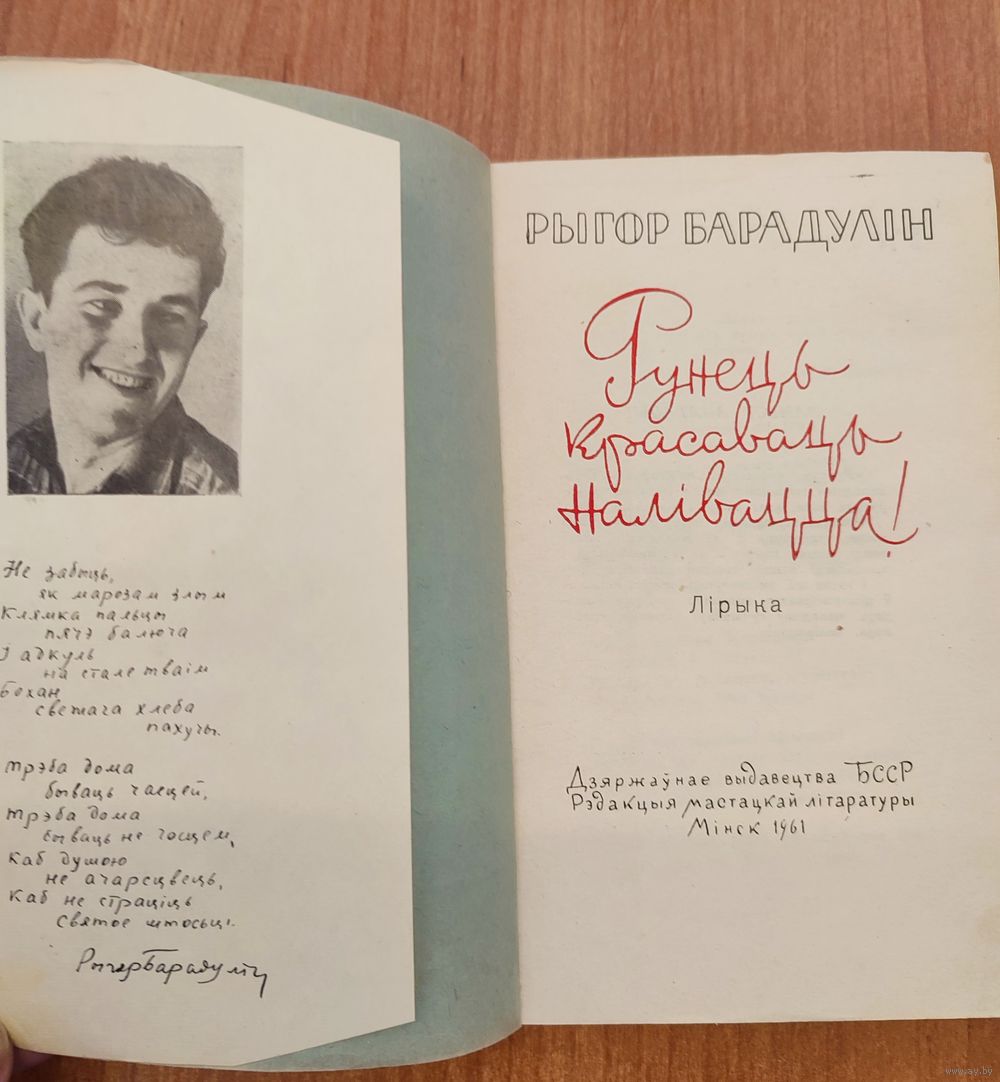 Не забыць,
як марозам злым
Клямка пальцы
пячэ балюча
І адкуль
на стале тваім
Бохан
свежага хлеба
пахучы.
Трэба дома
бываць часцей,
Трэба дома
бываць не госцем,
Каб душою
не ачарсцвець,
Каб не страціць
святое штосьці.
Рыгор Барадулін
РЫГОР БАРАДУЛІН
Рунець
красаваць
налівацца!
Лірыка
Дзяржаўнае выдавецтва БССР
Рэдакцыя мастацкай літаратуры
Мінск 1961
www.ay.by